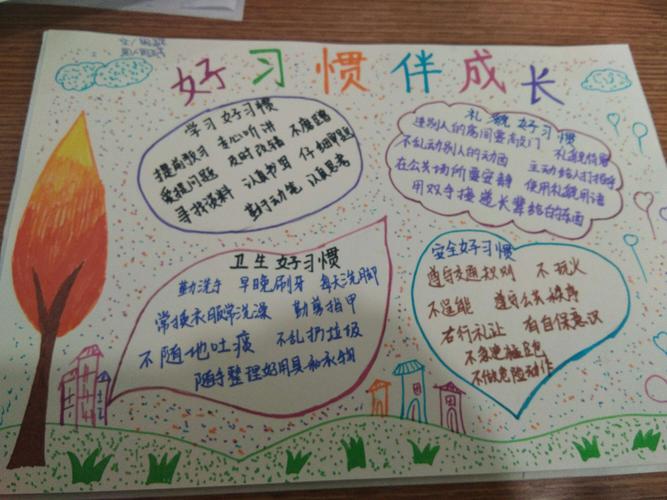 好习惯伴成长
学习好习惯
提前预习 专心听讲 不应
爱提问题 及时改错 仔细审题
寻找资料 认真书写
勤动笔 认真思考
礼貌好习惯
进别人的房间要高敲门 礼貌待客
不乱动别人的动西 主动给人打招呼
在公共场所要安静 使用礼貌用语
用双手接递长辈给的东西
卫生好习惯
勤洗手 早晚刷牙 每天洗脚
常换衣服常洗澡 勤剪指甲
不随地吐痰 不乱扔垃圾
随手整理好用具和衣物
安全好习惯
遵守交通规则 不玩火
不逞能 遵守公共秩序
右行礼让 有自保意识
不急速猛跑
不做危险动作